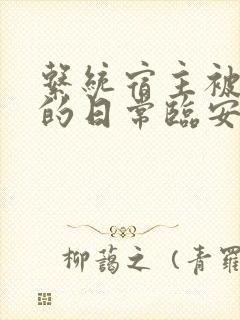 繫統宿主被
的日常臨安
柳藹之（青羅